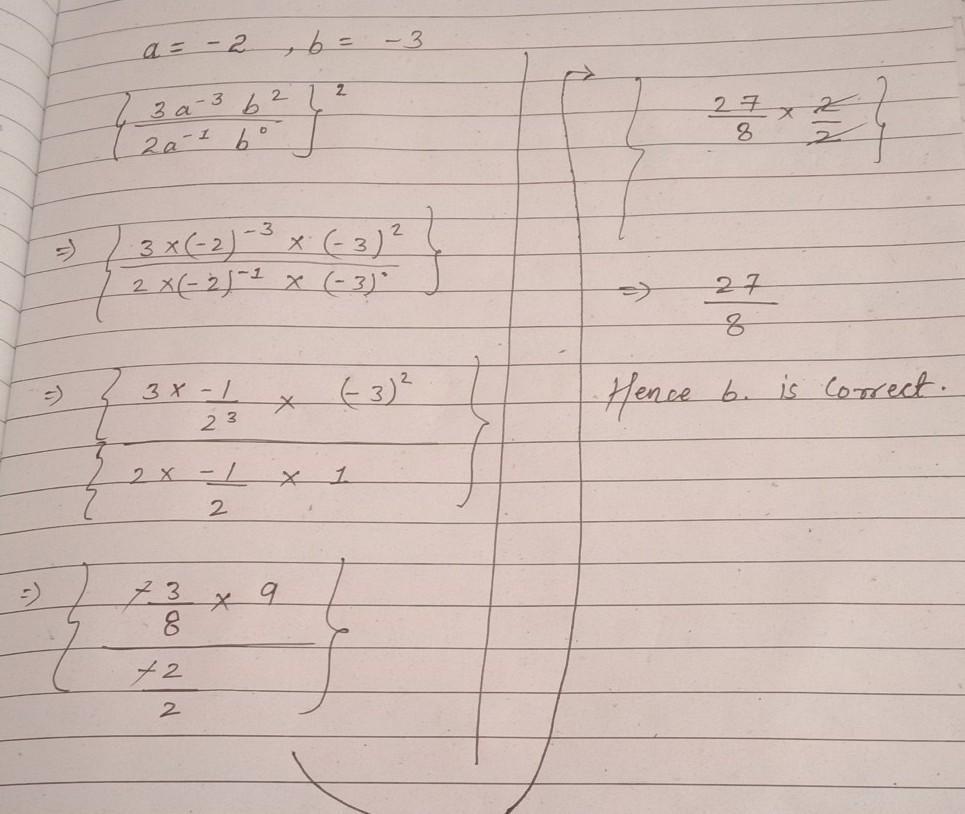 a = -2 , b = -3
{ 3a⁻³ b² / 2a⁻¹ b⁰ }²
⇒ { 3×(-2)⁻³ × (-3)² / 2×(-2)⁻¹ × (-3)⁰ }
⇒ { 3 × -1/2³ × (-3)² / 2 × -1/2 × 1 }
⇒ { -3/8 × 9 / -2/2 }
→ { 27/8 × 2/2 }
⇒ 27/8
Hence b. is correct.